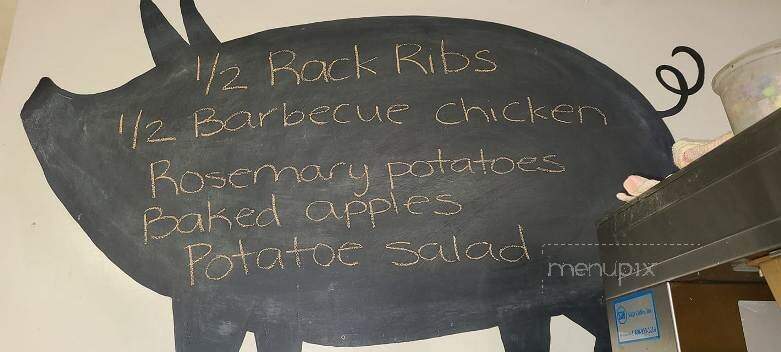 1/2 Rack Ribs
1/2 Barbecue chicken
Rosemary potatoes
Baked apples
Potatoe salad
menupix